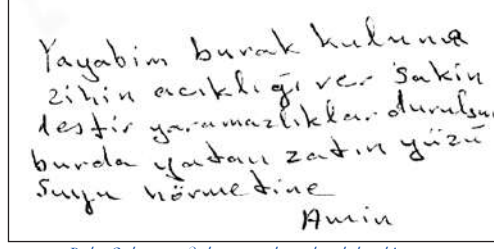 Yayabim burak kuluna
zihin acıklığı ver sakin
leştir yaramazlıklar durulsun
burda yatan zatın yüzü
Suyu hörmetine
Amin